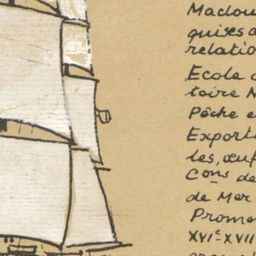 Maclou
quises d
relatio
Ecole d
toire N
Pêche e
Exporti
les, œuf
Cons de
de Mer
Prome
XVIe-XVII